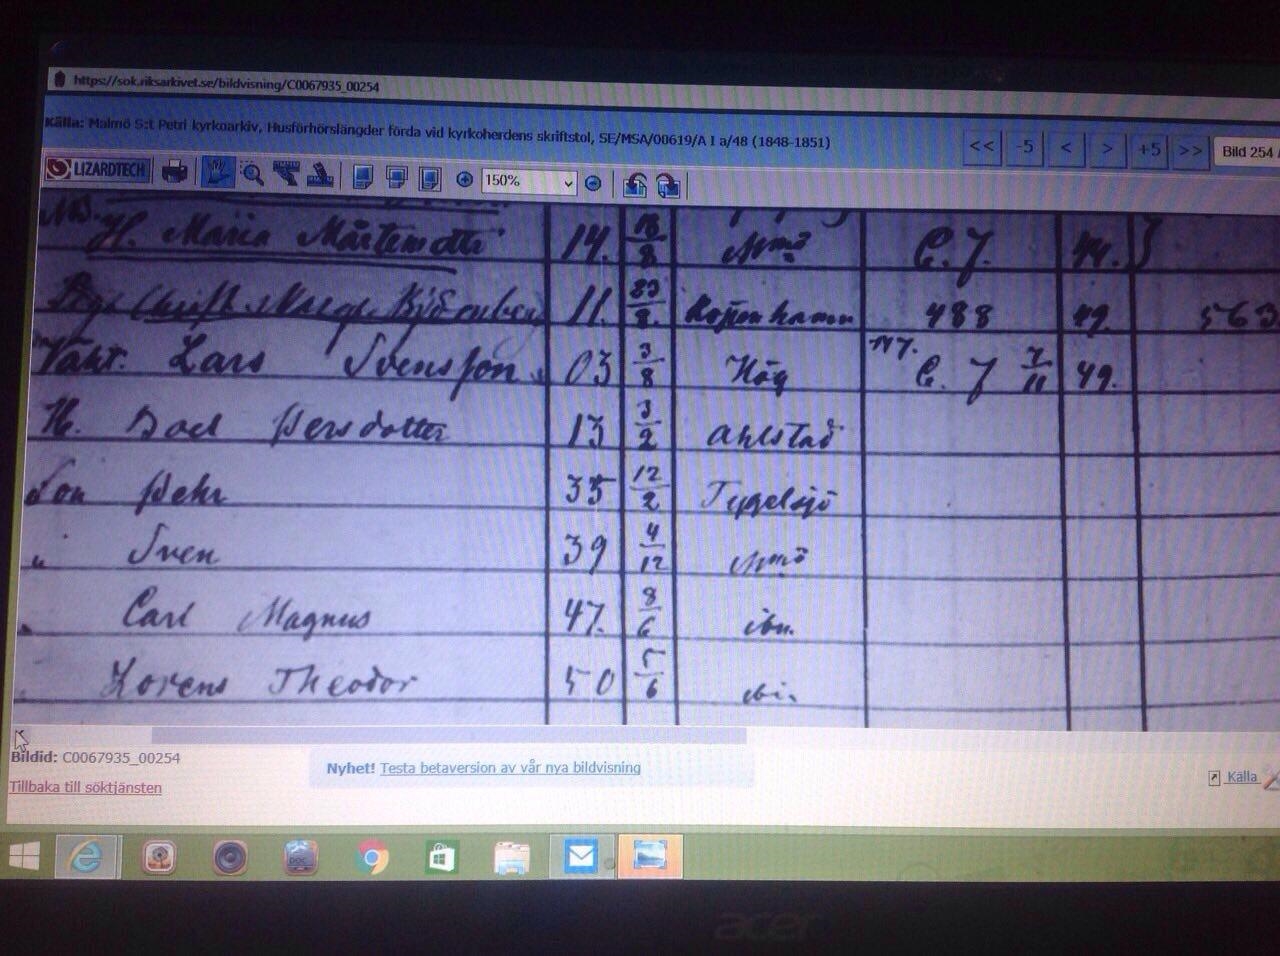 https://sok.riksarkivet.se/bildvisning/C0067935_00254
Källa: Malmö S:t Petri kyrkoarkiv, Husförhörslängder förda vid kyrkoherdens skriftstol, SE/MSA/00619/A I a/48 (1848-1851)
<< -5 < > +5 >> Bild 254 /
LIZARDTECH 150%
H. Maria Mårtensdotter 14. 18/8 Mmö C. J. 44.
11. 23/8. Kopenhamn 488 49. 563
Vakt. Lars Svensson 03 3/8 Hög 117. C. J 7/11 49.
H. Boel Persdotter 13 3/2 Ahlstad
Son Pehr 35 12/2 Tygelsjö
" Sven 39 4/12 Mmö
Carl Magnus 47. 8/6 ibm.
Lorens Theodor 50 5/6 ibi.
Bildid: C0067935_00254
Nyhet! Testa betaversion av vår nya bildvisning
Källa
Tillbaka till söktjänsten
DOC
acer